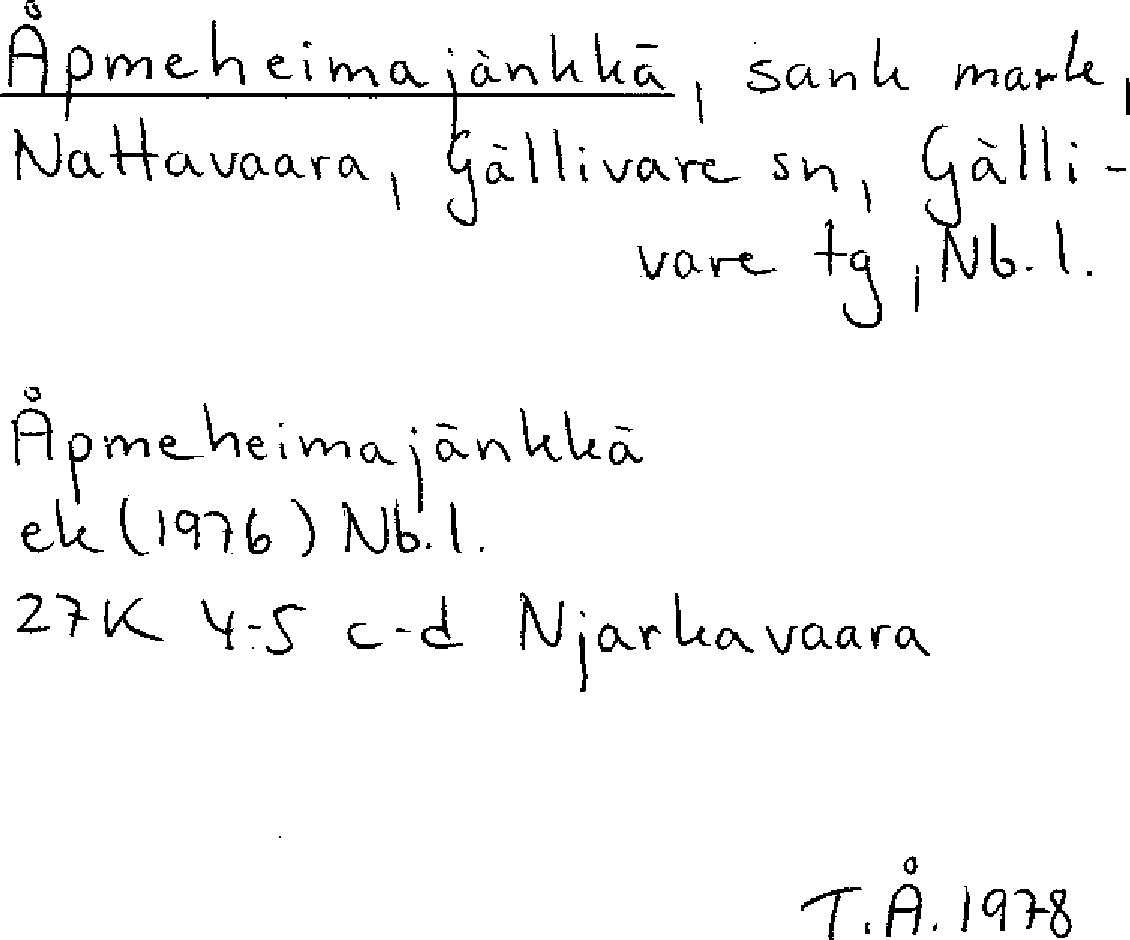 Åpmeheimajänkkä, sank mark,
Nattavaara, Gällivare sn, Gälli-
vare tg, Nb.l.
Åpmeheimajänkkä
ek (1976) Nb.l.
27K 4-5 c-d Njarkavaara
T.Å. 1978